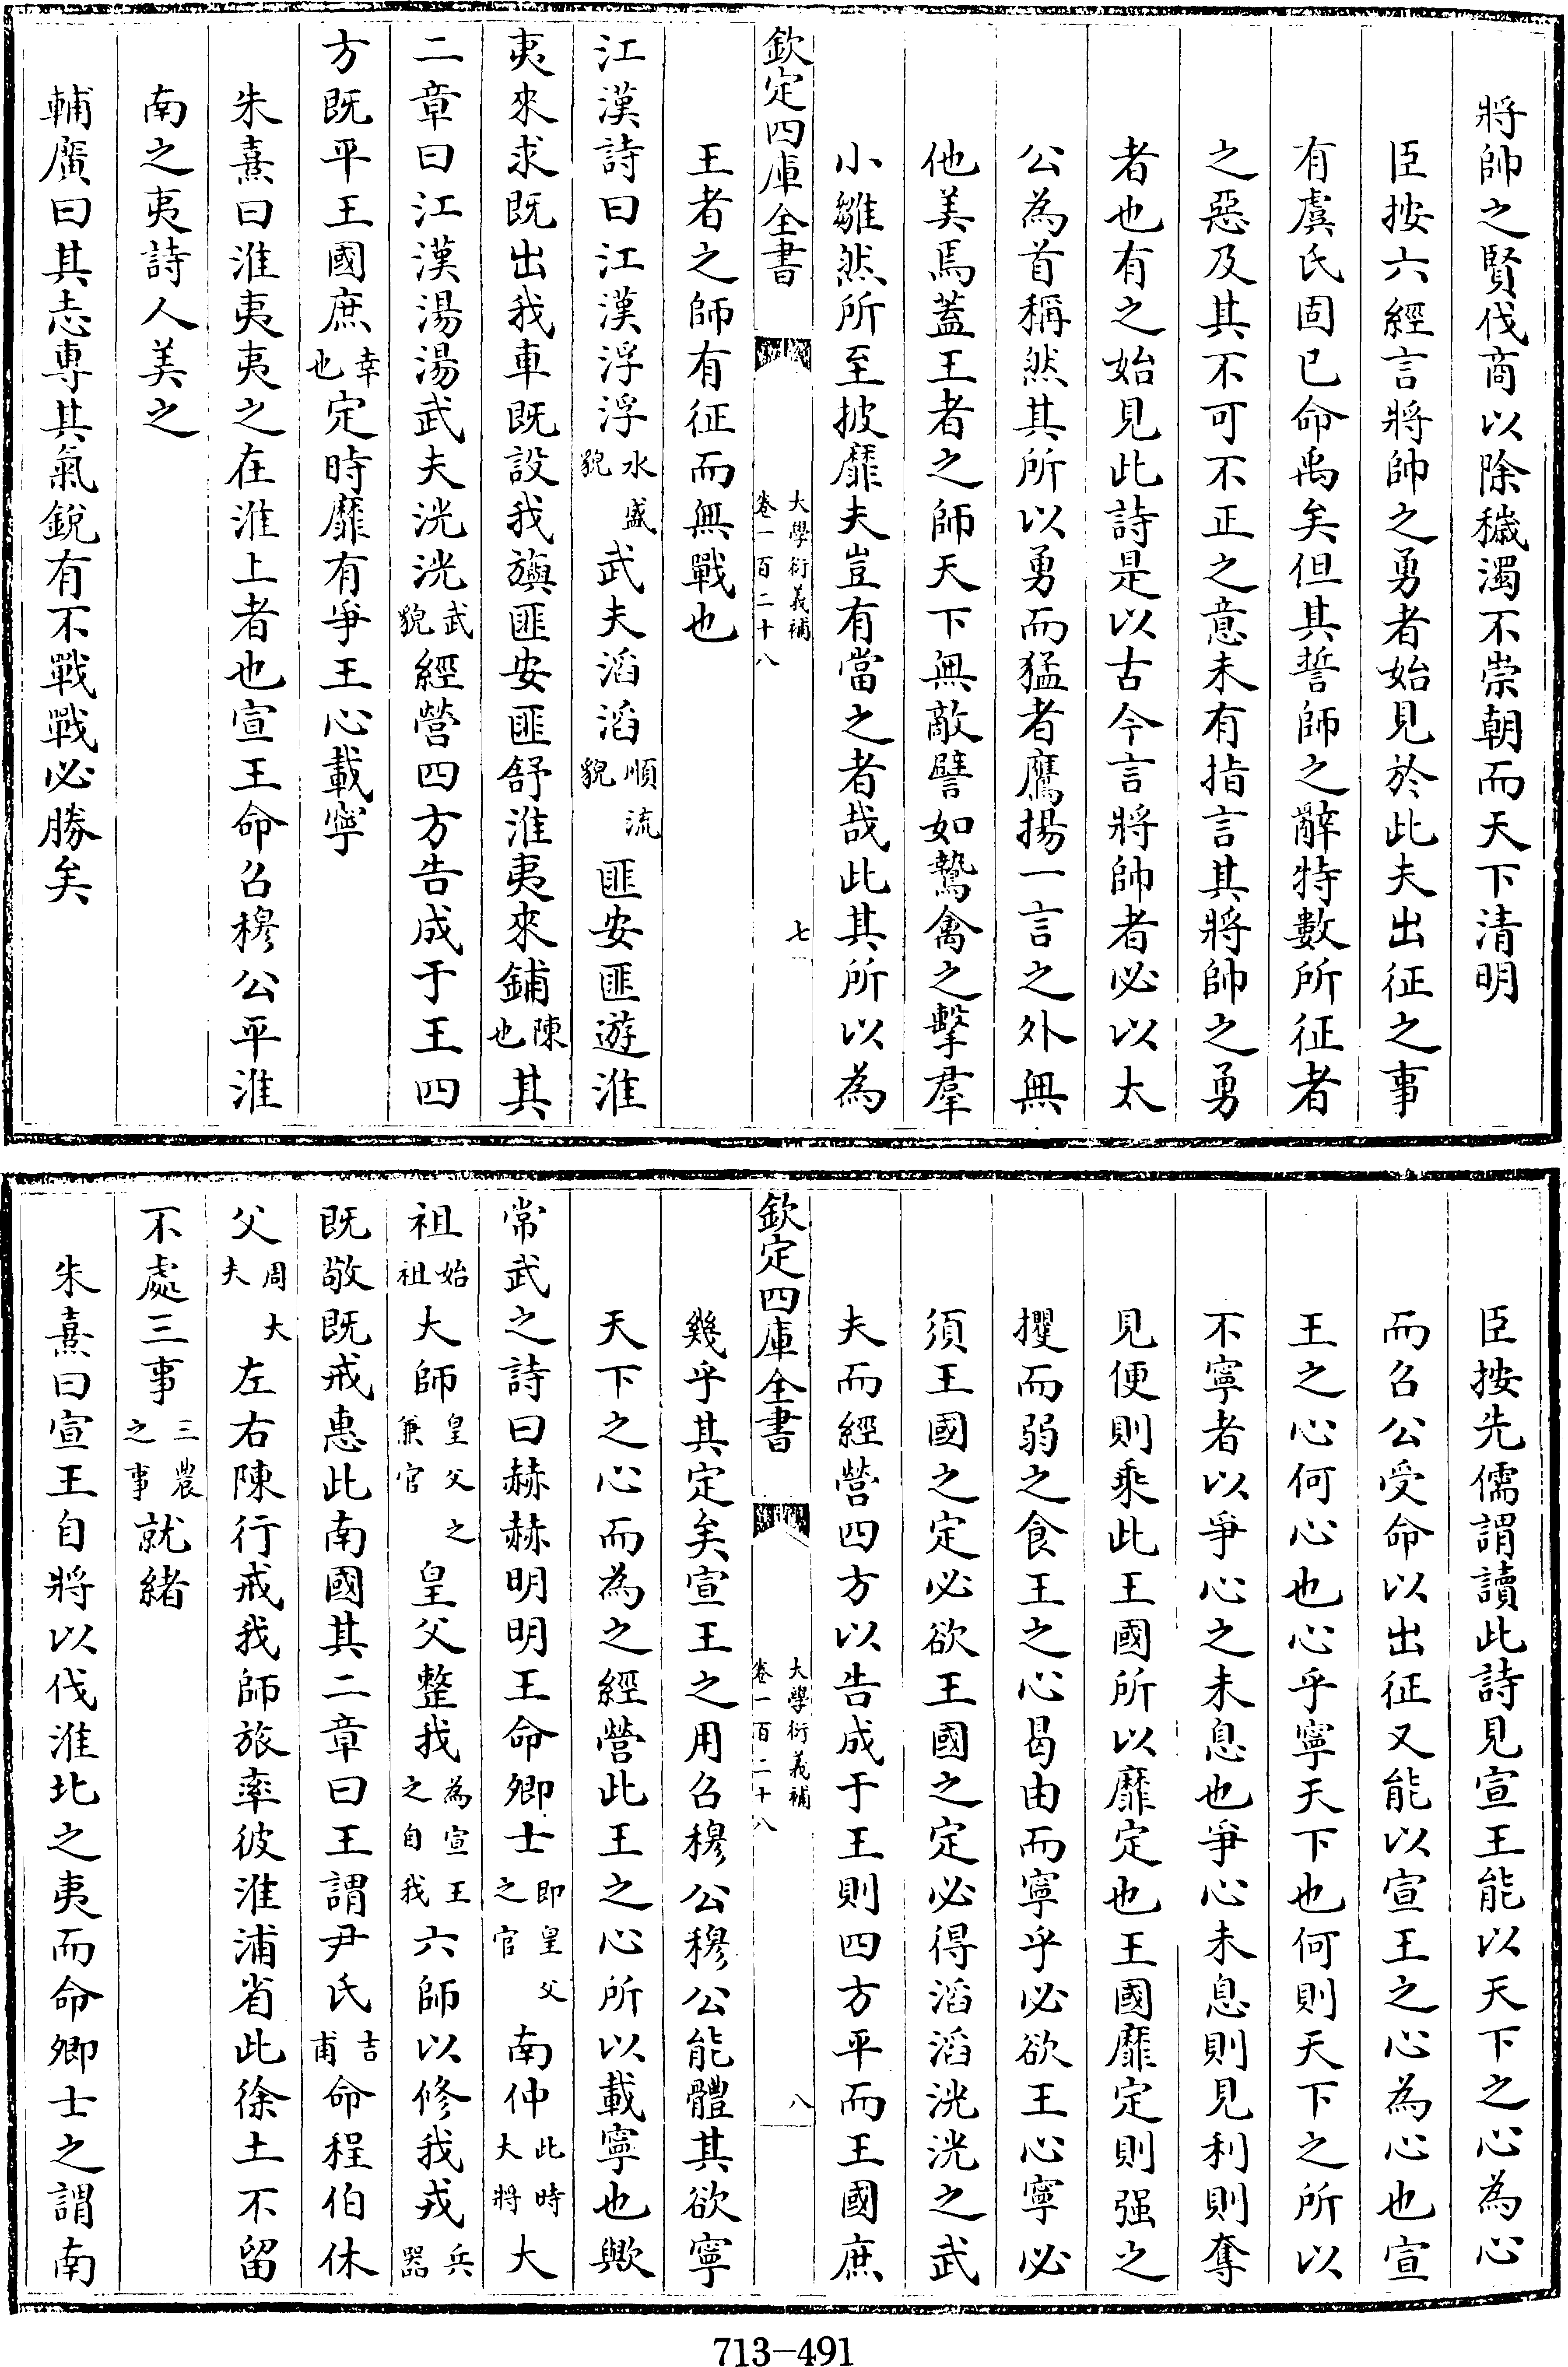 將帥之賢伐商以除穢濁不崇朝而天下清明
臣按六經言將帥之勇者始見於此夫出征之事
有虞氏固已命禹矣但其誓師之辭特數所征者
之惡及其不可不正之意未有指言其將帥之勇
者也有之始見此詩是以古今言將帥者必以太
公為首稱然其所以勇而猛者鷹揚一言之外無
他美焉蓋王者之師天下無敵譬如鷙禽之擊羣
小雛然所至披靡夫豈有當之者哉此其所以為
欽定四庫全書 大學衍義補 卷一百二十八 七
王者之師有征而無戰也
江漢詩曰江漢浮浮水盛貌武夫滔滔順流貌匪安匪遊淮
夷來求既出我車既設我旟匪安匪舒淮夷來鋪陳也其
二章曰江漢湯湯武夫洸洸武貌經營四方告成于王四
方既平王國庶幸也定時靡有爭王心載寧
朱熹曰淮夷夷之在淮上者也宣王命召穆公平淮
南之夷詩人美之
輔廣曰其志專其氣銳有不戰戰必勝矣
臣按先儒謂讀此詩見宣王能以天下之心為心
而召公受命以出征又能以宣王之心為心也宣
王之心何心也心乎寧天下也何則天下之所以
不寧者以爭心之未息也爭心未息則見利則奪
見便則乘此王國所以靡定也王國靡定則强之
攫而弱之食王之心曷由而寧乎必欲王心寧必
須王國之定必欲王國之定必得滔滔洸洸之武
夫而經營四方以告成于王則四方平而王國庶
欽定四庫全書 大學衍義補 卷一百二十八 八
幾乎其定矣宣王之用召穆公穆公能體其欲寧
天下之心而為之經營此王之心所以載寧也歟
常武之詩曰赫赫明明王命卿士即皇父之官南仲此時大將大
祖始祖大師皇父之兼官皇父整我為宣王之自我六師以修我戎兵器
既敬既戒惠此南國其二章曰王謂尹氏吉甫命程伯休
父周大夫左右陳行戒我師旅率彼淮浦省此徐土不留
不處三事三農之事就緒
朱熹曰宣王自將以伐淮北之夷而命卿士之謂南
713-491